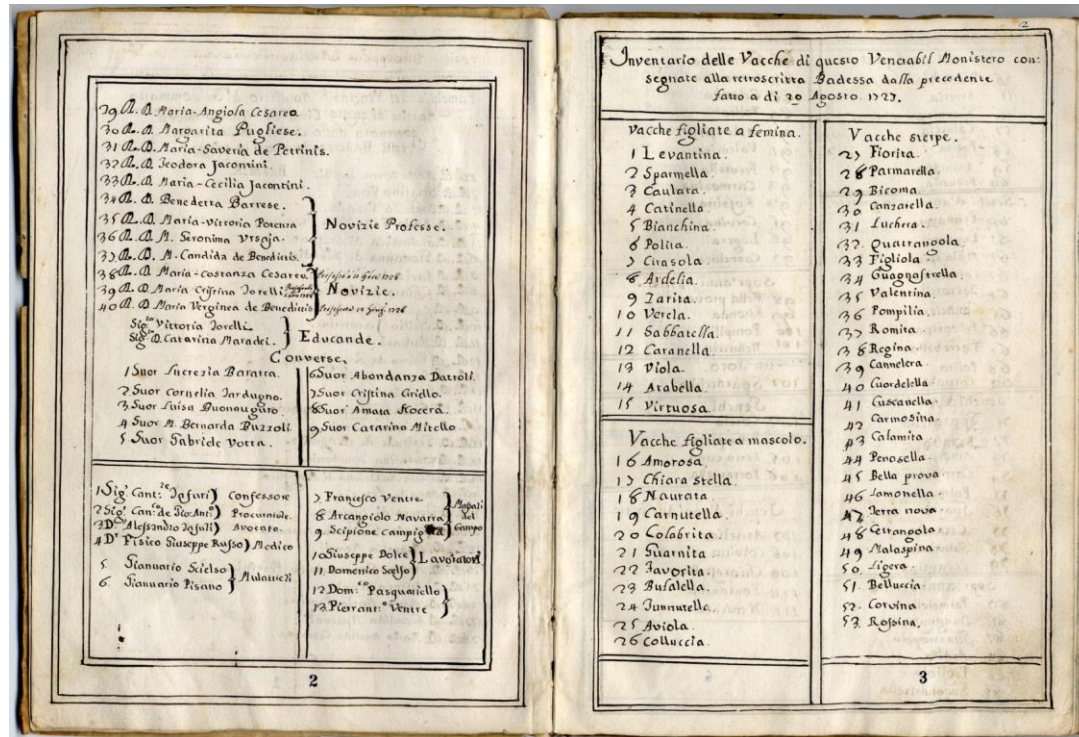 29 R. D. Maria-Angiola Cesareo
30 R. D. Margarita Pugliese.
31 R. D. Maria-Saveria de Petrinis.
32 R. D. Teodora Jacontini.
33 R. D. Maria-Cecilia Jacontini.
34 R. D. Benedetta Barrese.
35 R. D. Maria-Vittoria Potenza
36 R. D. M. Geronima
37 R. D. M. Candida de Benedictis.
Novizie Professe.
38 R. D. Maria-Costanza Cesareo.
39 R. D. Maria Cristina Jorelli
40 R. D. Maria Verginea de Benedictis
Novizie.
Sig.ra Vittoria Jorelli.
Sig.ra D. Catarina Maradei.
Educande.
Converse.
1 Suor Lucrezia Baratta.
2. Suor Cornelia Jardugno.
3. Suor Luisa Buonauguro.
4 Suor M. Bernarda Buzzoli.
5 Suor Gabriele Votta.
6 Suor Abondanza Dattoli.
7 Suor Cristina Grillo.
8 Suor Amata Nocera.
9 Suor Catarina Mitello
1 Sig.r Cant.re Confessore
2 Sig.r Can.co de Pio Ant.o Procuratore.
3 D.r Alessandro Avocato.
4 D.r Fisico Giuseppe Russo Medico
5. Gianuario Scielso
6. Gianuario Pisano
Mulattieri
7 Francesco Ventre
8 Arcangiolo Navarra
9. Scipione
del Campo
10 Giuseppe Dolce
11 Domenico Scelso
Lavoratori
12 Dom.co Pasquariello
13. Pierrant.o Ventre
2
2
Inventario delle Vacche di questo Venerabil Monistero con=
segnate alla retroscritta Badessa dalla precedente
fatto a di 20 Agosto 1727.
Vacche figliate a femina.
1 Levantina.
2 Sparmella.
3 Caulara.
4 Catinella.
5 Bianchina.
6 Polita.
7 Cirasola.
8 Ardelia.
9 Zarita.
10 Verola.
11 Sabbatella.
12 Caranella.
13 Viola.
14 Arabella.
15 Virtuosa
Vacche figliate a mascolo.
16 Amorosa.
17 Chiara stella.
18 Naurata.
19 Carnutella.
20 Colabrita.
21 Guarnita
22 Favorita.
23 Bufalella.
24 Junnutella.
25 Aviola.
26 Colluccia.
Vacche sterpe.
27 Fiorita.
28 Parmarella.
29 Bicoma.
30 Canzarella.
31 Luchera.
32. Quatrangola.
33 Figliola
34 Guagnastrella.
35 Valentina.
36 Pompilia.
37 Romita.
38 Regina
39 Cannelera.
40 Cuordelella
41 Cuscanella.
42 Carmosina
43 Calamita
44 Penosella.
45 Bella prova
46 Jamonella.
47. Terra nova
48 Cetrangola.
49 Malaspina.
50. Ligera.
51. Belluccia.
52. Corvina.
53. Rossina.
3